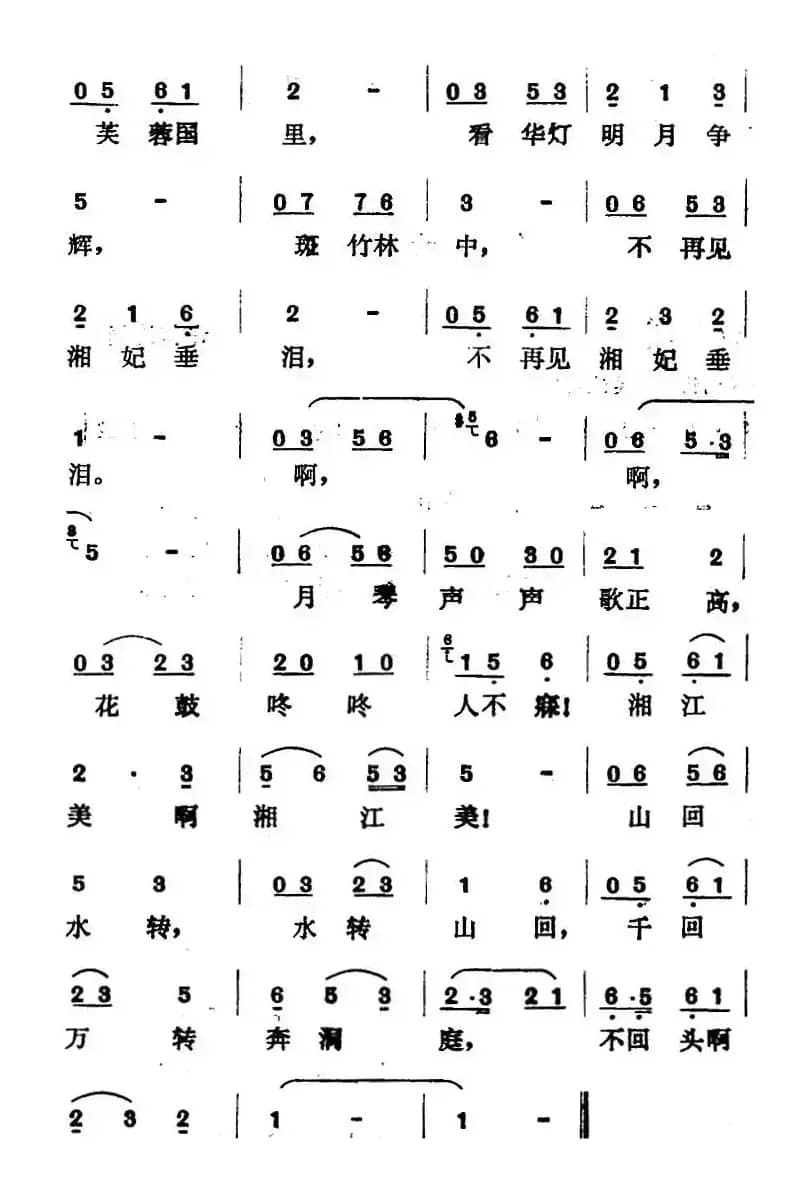 0 5 6 1 | 2 - | 0 3 5 3 | 2 1 3
芙蓉国 里, 看华灯 明月争
5 - | 0 7 7 6 | 3 - | 0 6 5 3
辉, 斑竹林 中, 不再见
2 1 6 | 2 - | 0 5 6 1 | 2 3 2
湘妃垂 泪, 不再见 湘妃垂
1 - | 0 3 5 6 | 6 - | 0 6 5·3
泪。 啊, 啊,
5 - | 0 6 5 6 | 5 0 3 0 | 2 1 2
月琴 声声 歌正高,
0 3 2 3 | 2 0 1 0 | 6 1 5 6 | 0 5 6 1
花鼓 咚咚 人不寐! 湘江
2 · 3 | 5 6 5 3 | 5 - | 0 6 5 6
美啊 湘江 美! 山回
5 3 | 0 3 2 3 | 1 6 | 0 5 6 1
水转, 水转 山回, 千回
2 3 5 | 6 5 3 | 2·3 2 1 | 6·5 6 1
万转 奔洞 庭, 不回头啊
2 3 2 | 1 - | 1 -